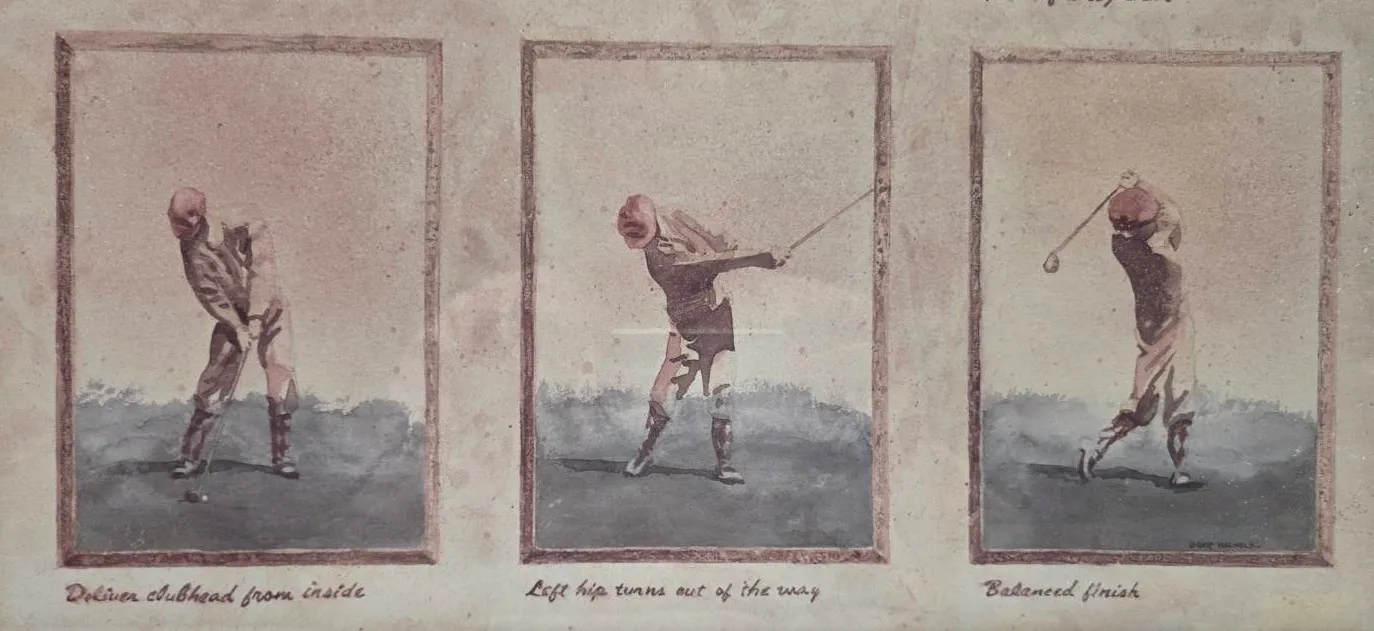 Deliver clubhead from inside
Left hip turns out of the way
Balanced finish